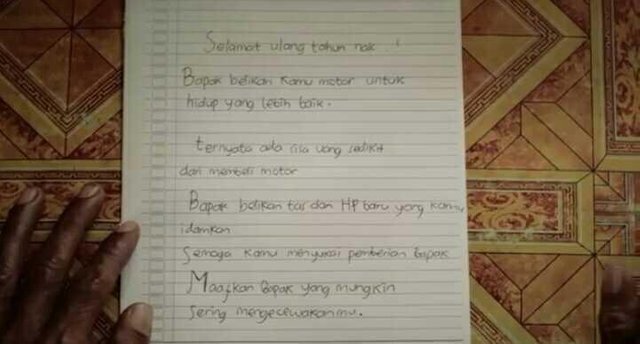 Selamat ulang tahun nak..!
Bapak belikan kamu motor untuk
hidup yang lebih baik.
ternyata ada sisa uang sedikit
dari membeli motor
Bapak belikan tas dan HP baru yang kamu
idamkan
Semoga kamu menyukai pemberian Bapak
Maafkan Bapak yang mungkin
Sering mengecewakanmu.